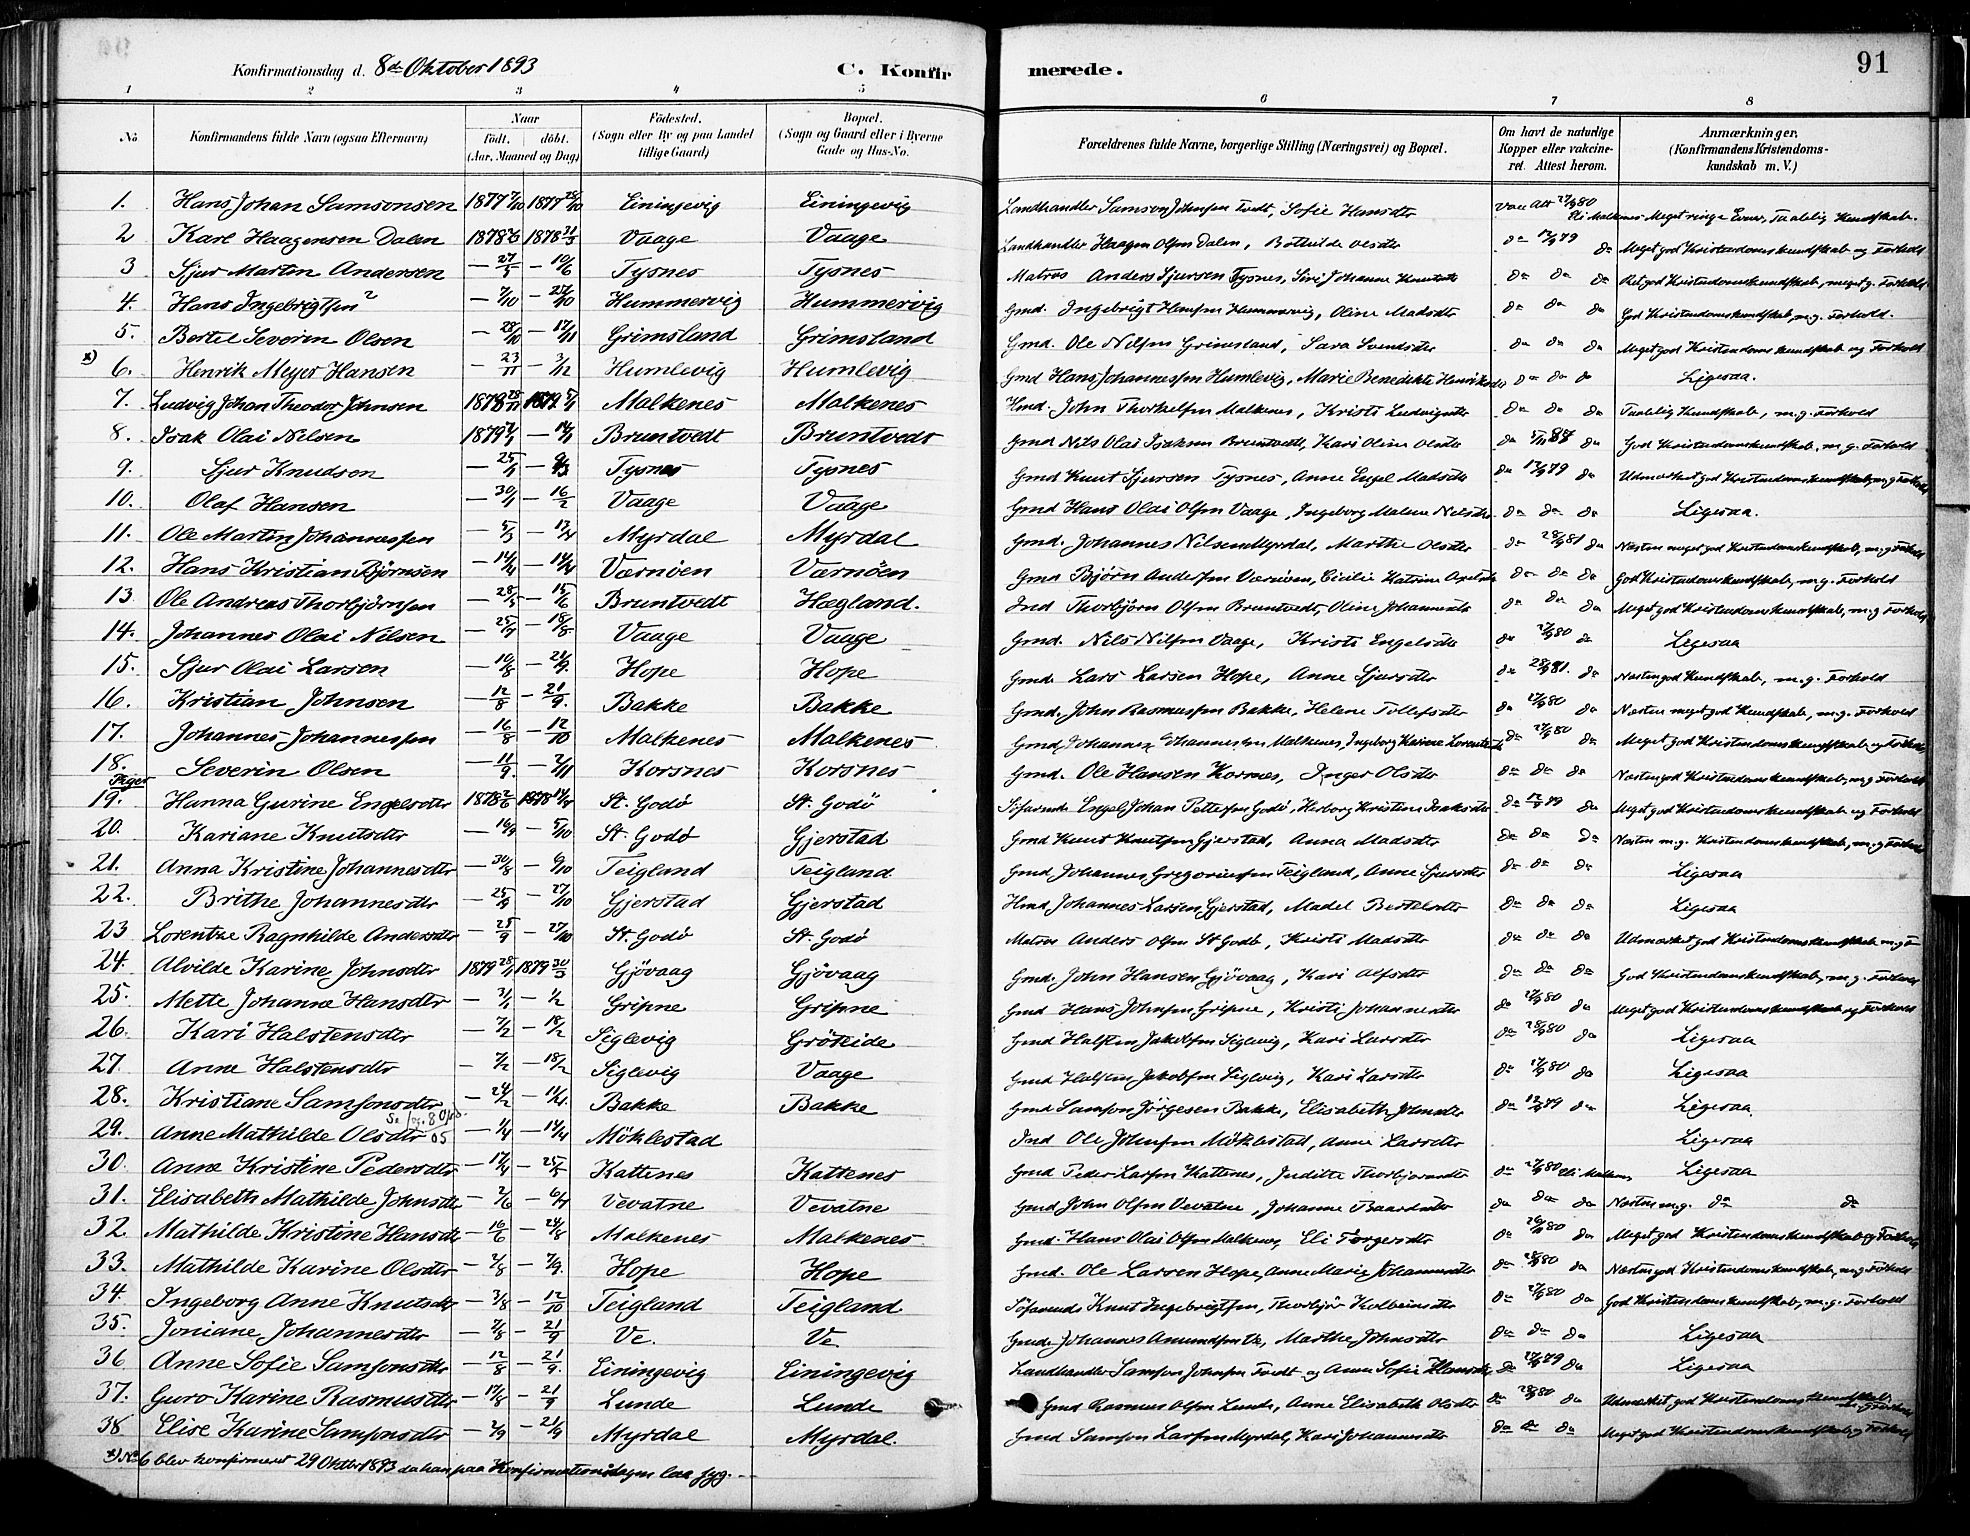 91
Konfirmationsdag d. 8de Oktober 1893 C. Konfirmerede.
1 2 3 4 5 6 7 8
No Konfirmandens fulde Navn (ogsaa Efternavn) Naar født. døbt. (Aar, Maaned og Dag) Födested. (Sogn eller By og paa Landet tillige Gaard) Bopæl. (Sogn og Gaard eller i Byerne Gade og Hus-No. Forældrenes fulde Navne, borgerlige Stilling (Næringsvei) og Bopæl. Om havt de naturlige Kopper eller vakcineret. Attest herom. Anmærkninger. (Konfirmandens Kristendomskundskab m. V.)
1. Hans Johan Samsonsen 1877 7/10 1877 28/10 Einingevig Einingevig Landhandler Samson Johnsen Tvedt, Sofie Hansdtr Meget ringe Evner, Taalelig Kundskab.
2 Karl Haagensen Dalen 1878 1878 Vaage Vaage Landhandler Haagen Olsen Dalen, Bothilde Olsdtr do 17/9 79 do Meget god Kristendomskundskab og Forhold
3 Sjur Martin Andersen — 27/5 — 10/6 Tysnes Tysnes Matros Anders Sjursen Tysnes, Siri Johanne Knutsdtr do do do Ret god Kristendomskundskab, meget g. Forhold
4. Hans Ingebrigtsen — 7/10 — 27/10 Hummervig Hummervig Gmd. Ingebrigt Hansen Hummervig, Oline Madsdtr do do do God Kristendomskundskab, m.g. Forhold.
5. Bertel Severin Olsen — 28/10 — 17/11 Grimsland Grimsland Gmd. Ole Nilsen Grimsland, Sara Svendsdtr do do do Meget god Kristendomskundskab og Forhold
x) 6. Henrik Meyer Hansen — 23/11 — 3/12 Humlevig Humlevig Gmd Hans Johannessen Humlevig, Marie Benedikte Henriksdtr do do do Ligesaa.
7. Ludvig Johan Theodor Johnsen 1878 28/11 1879 5/1 Malkenes Malkenes Hmd. John Thorkelsen Malkenes, Kristi Ludvigsdtr do do do Taalelig Kundskab, m.g. Forhold
8. Isak Olai Nilsen 1879 — 14/1 Bruntvedt Bruntvedt Gmd Nils Olai Isaksen Bruntvedt, Kari Oline Olsdtr do 5/11 87 do God Kristendomskundskab, m.g. Forhold
9. Sjur Knudsen — 25/1 — 9/3 Tysnes Tysnes Gmd Knut Sjursen Tysnes, Anne Engel Madsdtr do 17/9 79 do Udmærket god Kristendomskundskab, m.g. Forhold
10. Olaf Hansen — 30/1 — 16/2 Vaage Vaage Gmd Hans Olai Olsen Vaage, Ingeborg Malene Nilsdtr do do do Ligesaa.
11. Ole Martin Johannessen — 5/3 — 13/4 Myrdal Myrdal Gmd. Johannes Nilsen Myrdal, Marthe Olsdtr do 28/9 81 do Næsten meget god Kristendomskundskab, m.g. Forhold
12. Hans Kristian Bjørnsen — 14/4 — 14/4 Værnöen Værnöen Gmd Bjørn Andersen Værnöen, Cecilie Katrine do do do God Kristendomskundskab, m.g. Forhold
13 Ole Andreas Thorbjörnsen — 28/5 — 15/6 Bruntvedt Hægland. Ind Thorbjörn Olsen Bruntvedt, Oline Johannesdtr do do do Meget god Kristendomskundskab, m.g. Forhold
14. Johannes Olai Nilsen — 25/7 — 18/8 Vaage Vaage Gmd. Nils Nilsen Vaage, Kristi Engelsdtr do 27/9 80 do Ligesaa
15. Sjur Olai Larsen — 10/8 — 21/9. Hope Hope Gmd. Lars Larsen Hope, Anne Sjursdtr do 28/9 81. do Næsten god Kundskab, m.g. Forhold
16. Kristian Johnsen — 12/8 — 21/9. Bakke Bakke Gmd. John Rasmussen Bakke, Helene Tollefsdtr do 27/9 80 do Næsten meget god Kundskab, m.g. Forhold
17. Johannes Johannessen — 16/8 — 12/10 Malkenes Malkenes Gmd Johannes Johannessen Malkenes, Ingeborg Karine Lorentsdtr do 27/9 80 do Meget god Kristendomskundskab og Forhold
18. Severin Olsen — 11/9. — 2/11 Korsnes Korsnes Gmd. Ole Hansen Korsnes, Inger Olsdtr do do do Næsten god Kristendomskundskab, m.g Forhold
Piger
19. Hanna Gurine Engelsdtr 1878 2/6 1878 14/7 St. Godö St. Godö Söfarende Engel Johan Pettersen Godö, Herborg Kristine Isaksdtr do 17/9 79 do Meget god Kristendomskundskab og Forhold
20. Kariane Knutsdtr — 16/9 — 5/10 St. Godö Gjerstad Gmd Knut Knutsen Gjerstad, Anna Madsdtr do do do Næsten m.g. Kristendomskundskab, m.g. Forhold
21. Anna Kristine Johannesdtr — 30/8 — 6/10 Teigland Teigland Gmd Johannes Gregoriussen Teigland, Anne Sjursdtr do do do Ligesaa
22. Brithe Johannesdtr — 25/9 — 27/10 Gjerstad Gjerstad Hmd Johannes Larsen Gjerstad, Madel Bertelsdtr do do do Ligesaa
23 Lorentze Ragnhilde Andersdtr — 25/9 — 27/10 St. Godö St. Godö Matros Anders Olsen St Godö, Kristi Madsdtr do do do Udmærket god Kristendomskundskab m.g. F
24. Alvilde Karine Johnsdtr 1879 28/1 1879 30/3 Gjövaag Gjövaag Gmd. John Hansen Gjövaag, Kari Olsdtr do do do God Kristendomskundskab, m.g. Forhold
25. Mette Johanne Hansdtr — 31/1 — 1/2 Gripne Gripne Gmd Hans Johnsen Gripne, Kristi Johannesdtr do 27/9 80 do Meget god Kristendomskundskab og Forhold
26. Kari Halstensdtr — 7/2 — 18/2 Siglevig Gröteide Gmd Halsten Jakobsen Siglevig, Kari Larsdtr do 28/9 80 do Ligesaa
27. Anne Halstensdtr — 7/2 — 18/2 Siglevig Vaage Gmd Halsten Jakobsen Siglevig, Kari Larsdtr do 27/9 80 do Ligesaa
28. Kristiane Samsonsdtr — 24/2 — 11/4 Bakke Bakke Gmd Samson Jörgesen Bakke, Elisabeth Johnsdtr do 79 do Ligesaa
29. Anne Mathilde Olsdtr — 1/4 — 14/4 Möklestad Ind Ole Johnsen Möklestad, Anne Larsdtr Ligesaa
30. Anne Kristine Pedersdtr — 17/4 — 25/5 Kattenes Kattenes Gmd Peder Larsen Kattenes, Judithe Thorbjørnsdtr do 27/9 80 Ligesaa
31. Elisabeth Mathilde Johnsdtr — 2/6 — 6/7 Vevatne Vevatne Gmd John Olsen Vevatne, Johanne Baardsdtr do do do Næsten m.g. do do
32. Mathilde Kristine Hansdtr — 16/6 — 24/8 Malkenes Malkenes Gmd. Hans Olai Olsen Malkenes, Eli Torgersdtr do 80 do Meget god Kristendomskundskab og Forhold
33. Mathilde Karine Olsdtr — 2/8 — 7/9. Hope Hope Gmd. Ole Larsen Hope, Anne Marie Johannesdtr do 28/9 80 do Næsten god Kristendomskundskab, m.g. Forhold
34. Ingeborg Anne Knutsdtr — 3/8 — 12/10 Teigland Teigland Söfarende Knut Ingebrigtsen, Thorbjör Kolbeinsdtr do 27/9 80 do God Kristendomskundskab, m.g. Forhold
35. Joniane Johannesdtr — 7/8 — 21/9 Ve. Ve Gmd. Johannes Amundsen Ve, Marthe Johnsdtr do do do Ligesaa
36 Anne Sofie Samsonsdtr — 12/8 — 21/9. Einingevig Einingevig Landhandler Samson Johnsen Tvedt og Anne Sofie Hansdtr do 17/9 79 do Ligesaa
37. Guro Karine Rasmusdtr — 17/8 — 21/9 Lunde Lunde Gmd Rasmus Olsen Lunde, Anne Elisabeth Olsdtr do 28/9 80 do Udmærket god Kristendomskundskab m.g. Forhold
38 Elise Karine Samsonsdtr — 2/9 — 21/9 Myrdal Myrdal. Gmd Samson Larsen Myrdal, Kari Johannesdtr do do do Meget god Kristendomskundskab og Forhold
x) No 6 blev konfirmeret 29 Oktbr 1893 da han paa Konfirmationsdagen laa syg. —